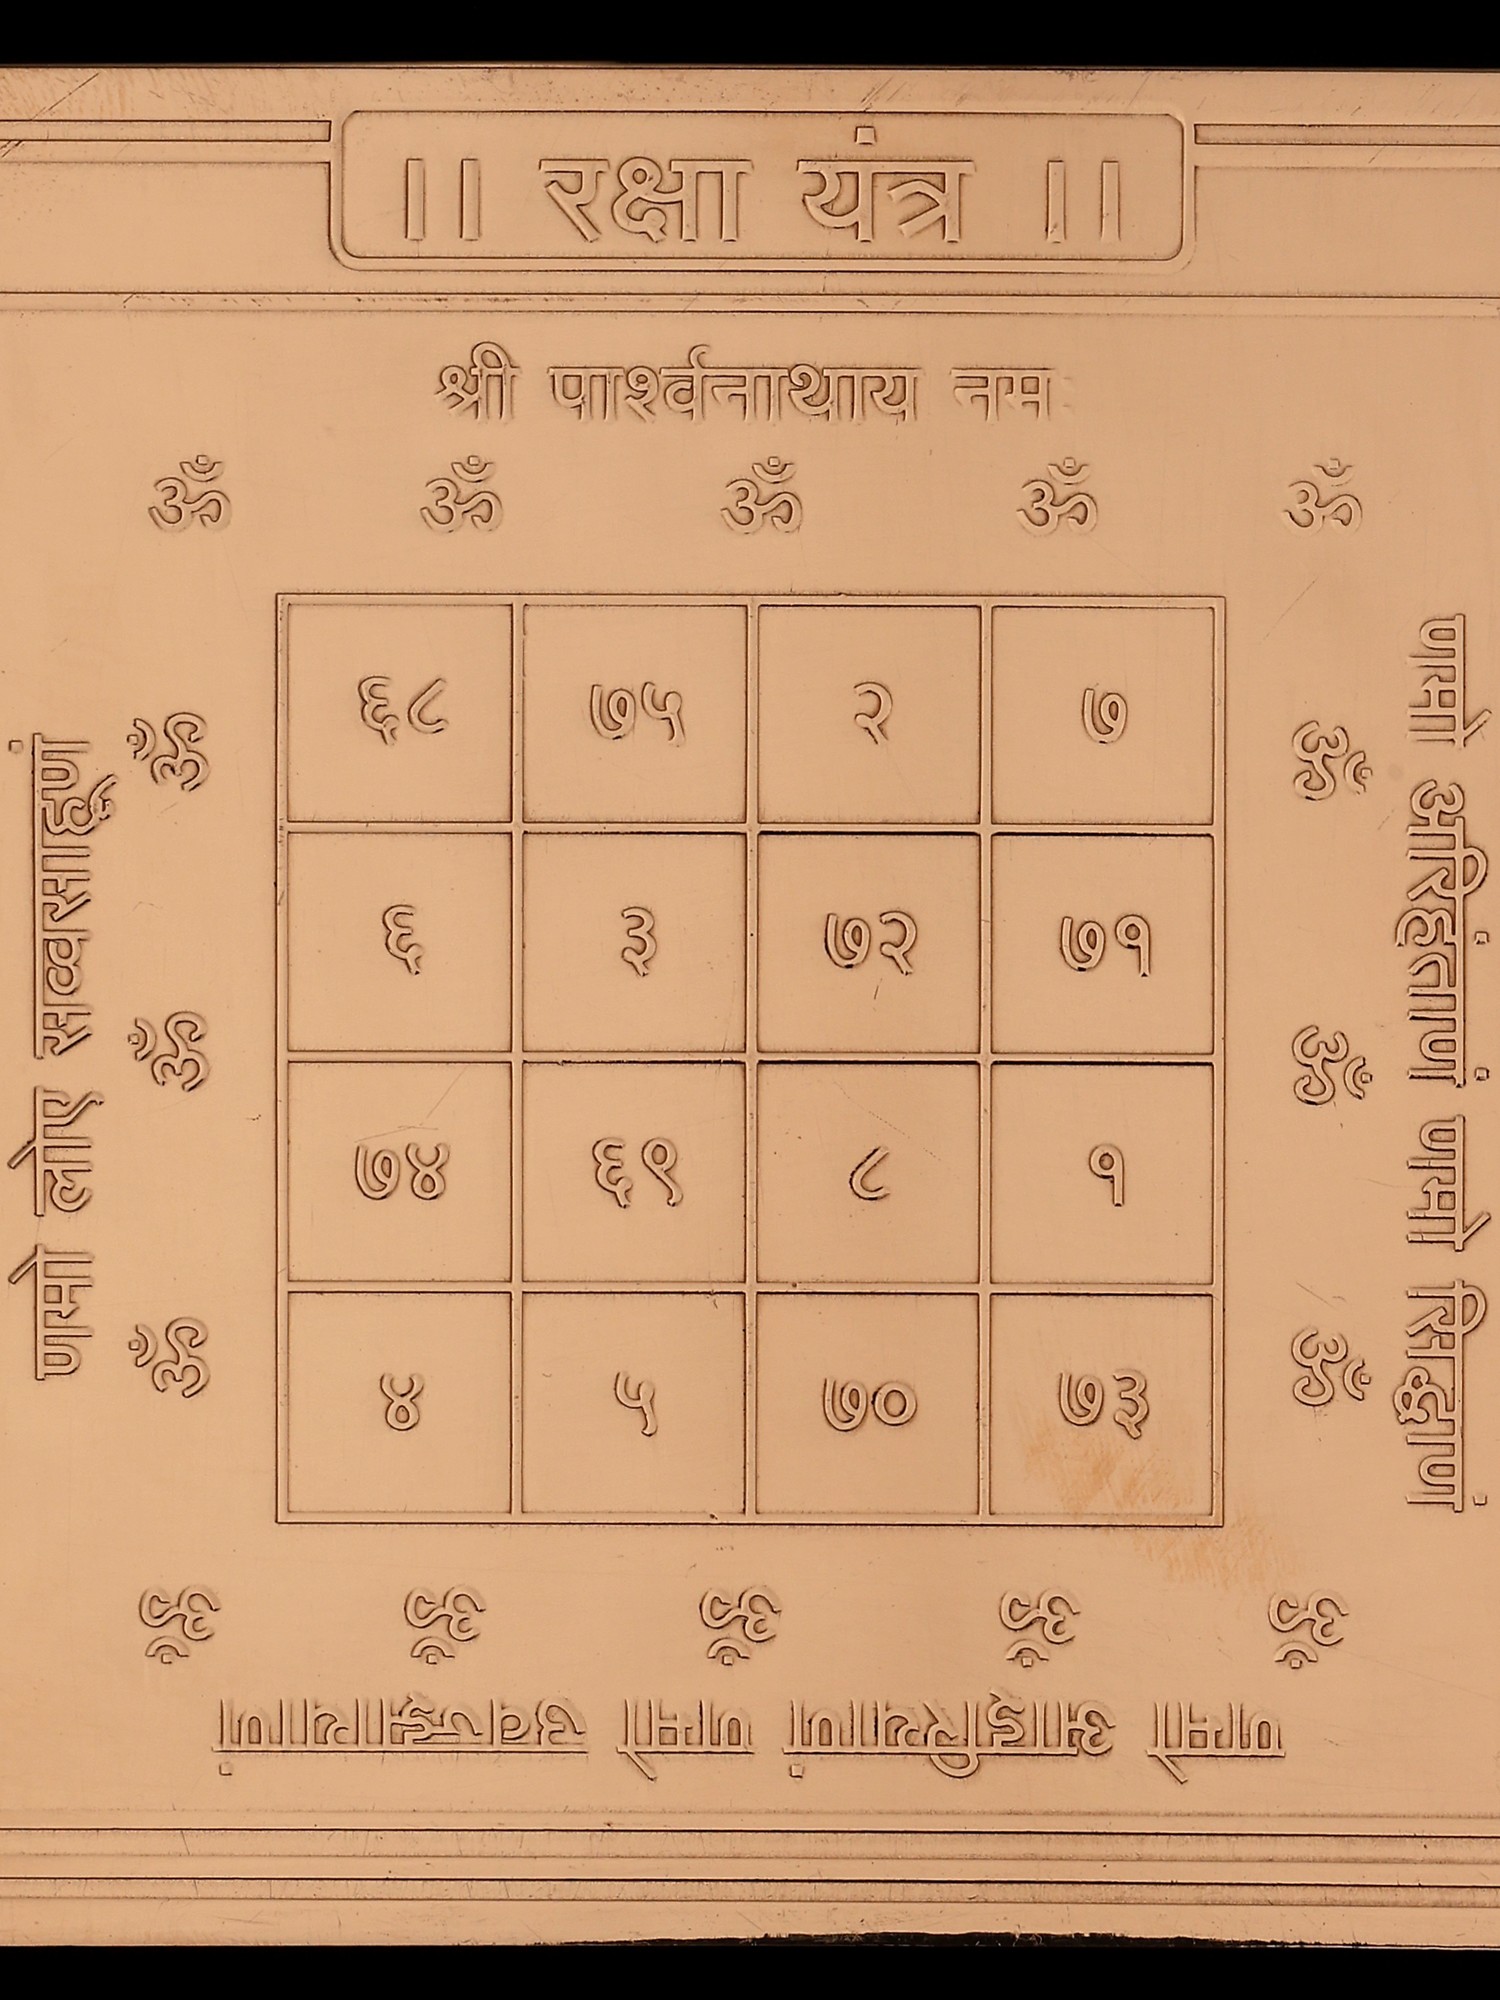 ।। रक्षा यंत्र ।।
श्री पार्श्वनाथाय नमः
ॐ ॐ ॐ ॐ ॐ
६८ ७५ २ ७
६ ३ ७२ ७१
७४ ६९ ८ १
४ ५ ७० ७३
ॐ ॐ ॐ
णमो अरिहंताणं णमो सिद्धाणं
ॐ ॐ ॐ ॐ ॐ
णमो आइरियाणं णमो उवज्झायाणं
ॐ ॐ ॐ
णमो लोए सव्वसाहूणं